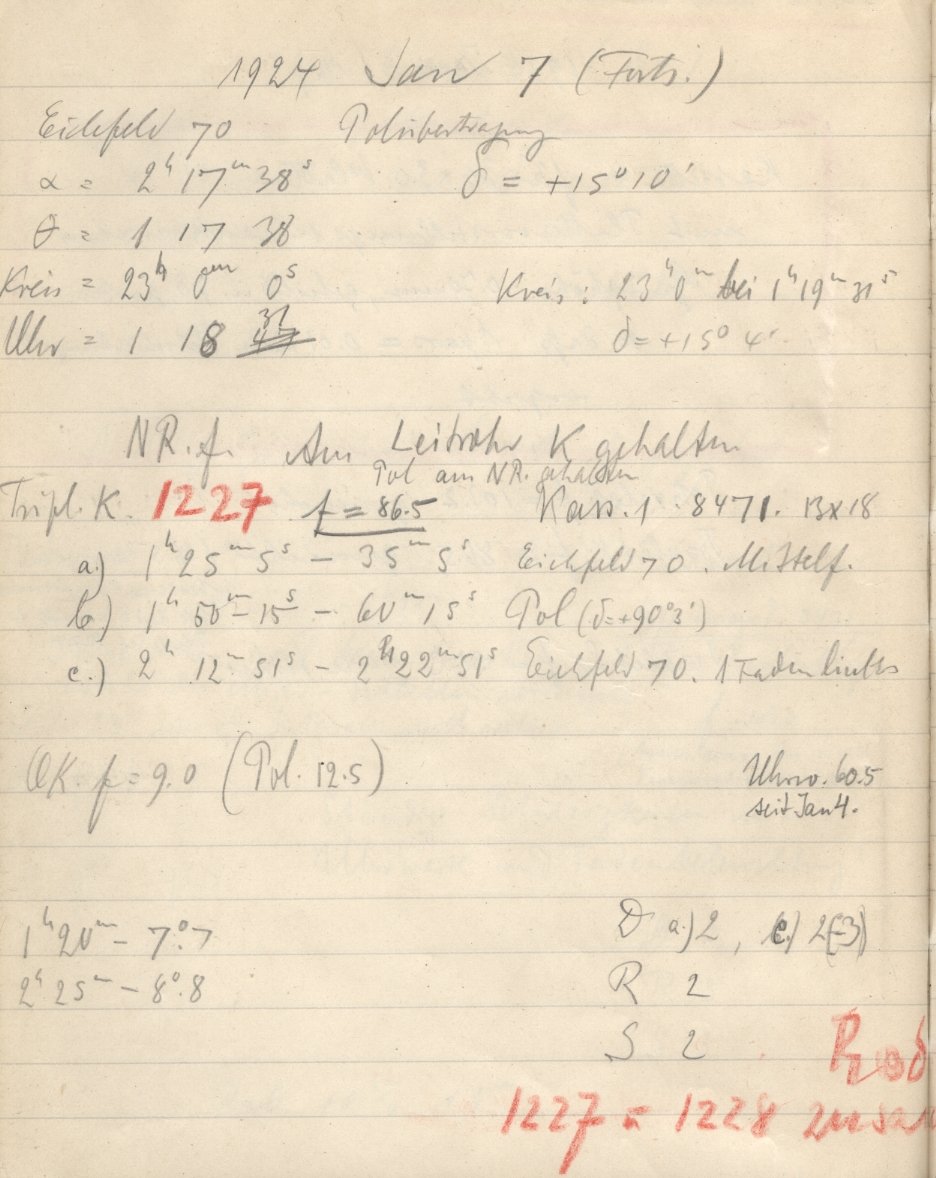 1924 Jan 7 (Forts.)
Eichfeld 70 Polübertragung
α = 2ʰ 17ᵐ 38ˢ δ = +15° 10'
θ = 1 17 38
Kreis = 23ʰ 0ᵐ 0ˢ Kreis: 23ʰ 0ᵐ bei 1ʰ 19ᵐ 31ˢ
Uhr = 1 18 31 δ = +15° 4'
NR. f. Am Leitrohr K gehalten
Pol am NR. gehalten
Tripl. K. 1227 f = 86.5 Kass. 1 8471. 13x18
a.) 1ʰ 25ᵐ 5ˢ – 35ᵐ 5ˢ Eichfeld 70. Mittelf.
b.) 1ʰ 50ᵐ 15ˢ – 60ᵐ 15ˢ Pol (δ=+90°3')
c.) 2ʰ 12ᵐ 51ˢ – 2ʰ 22ᵐ 51ˢ Eichfeld 70. 1 Faden links
OK. f = 9.0 (Pol. 12.5)
Uhrw. 60.5
seit Jan 4.
1ʰ 20ᵐ – 7°.7 D a.) 2, c.) 2(-3)
2ʰ 25ᵐ – 8°.8 R 2
S 2
1227 = 1228